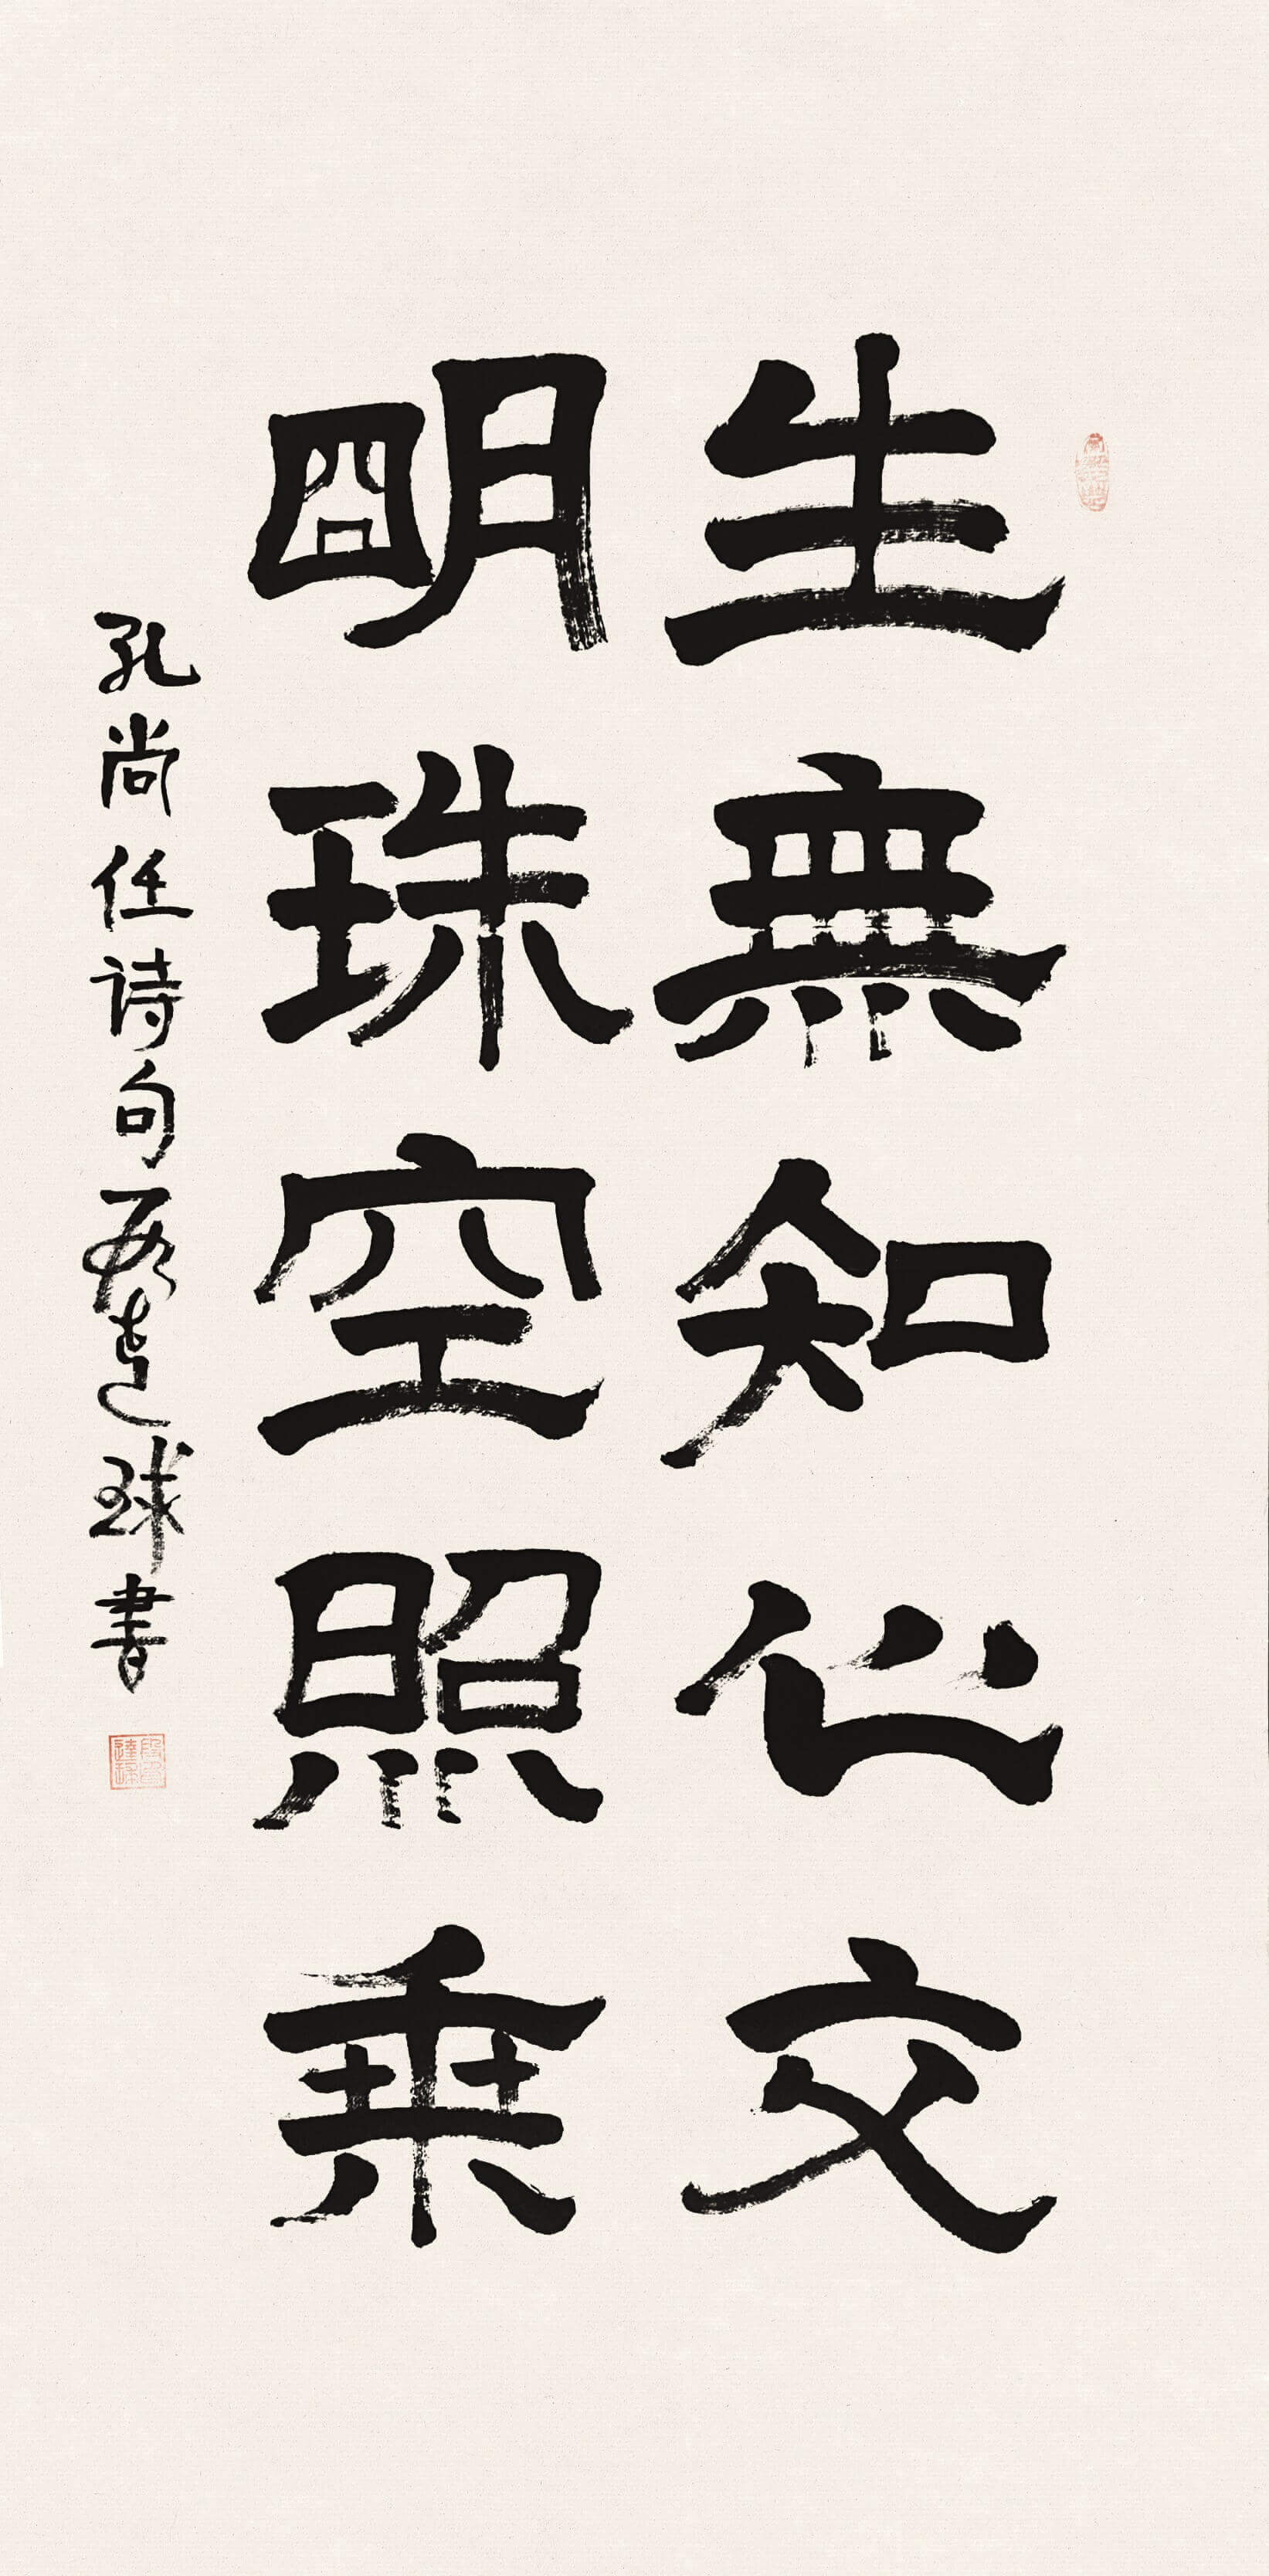 生無知心交
明珠空照乘
孔尚任诗句 段達球書